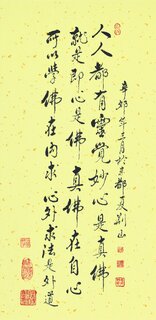 人人都有靈覺妙心是真佛
就是即心是佛真佛在自心
可以學佛在內求心外求法是外道
辛卯年月於京都夏荊山